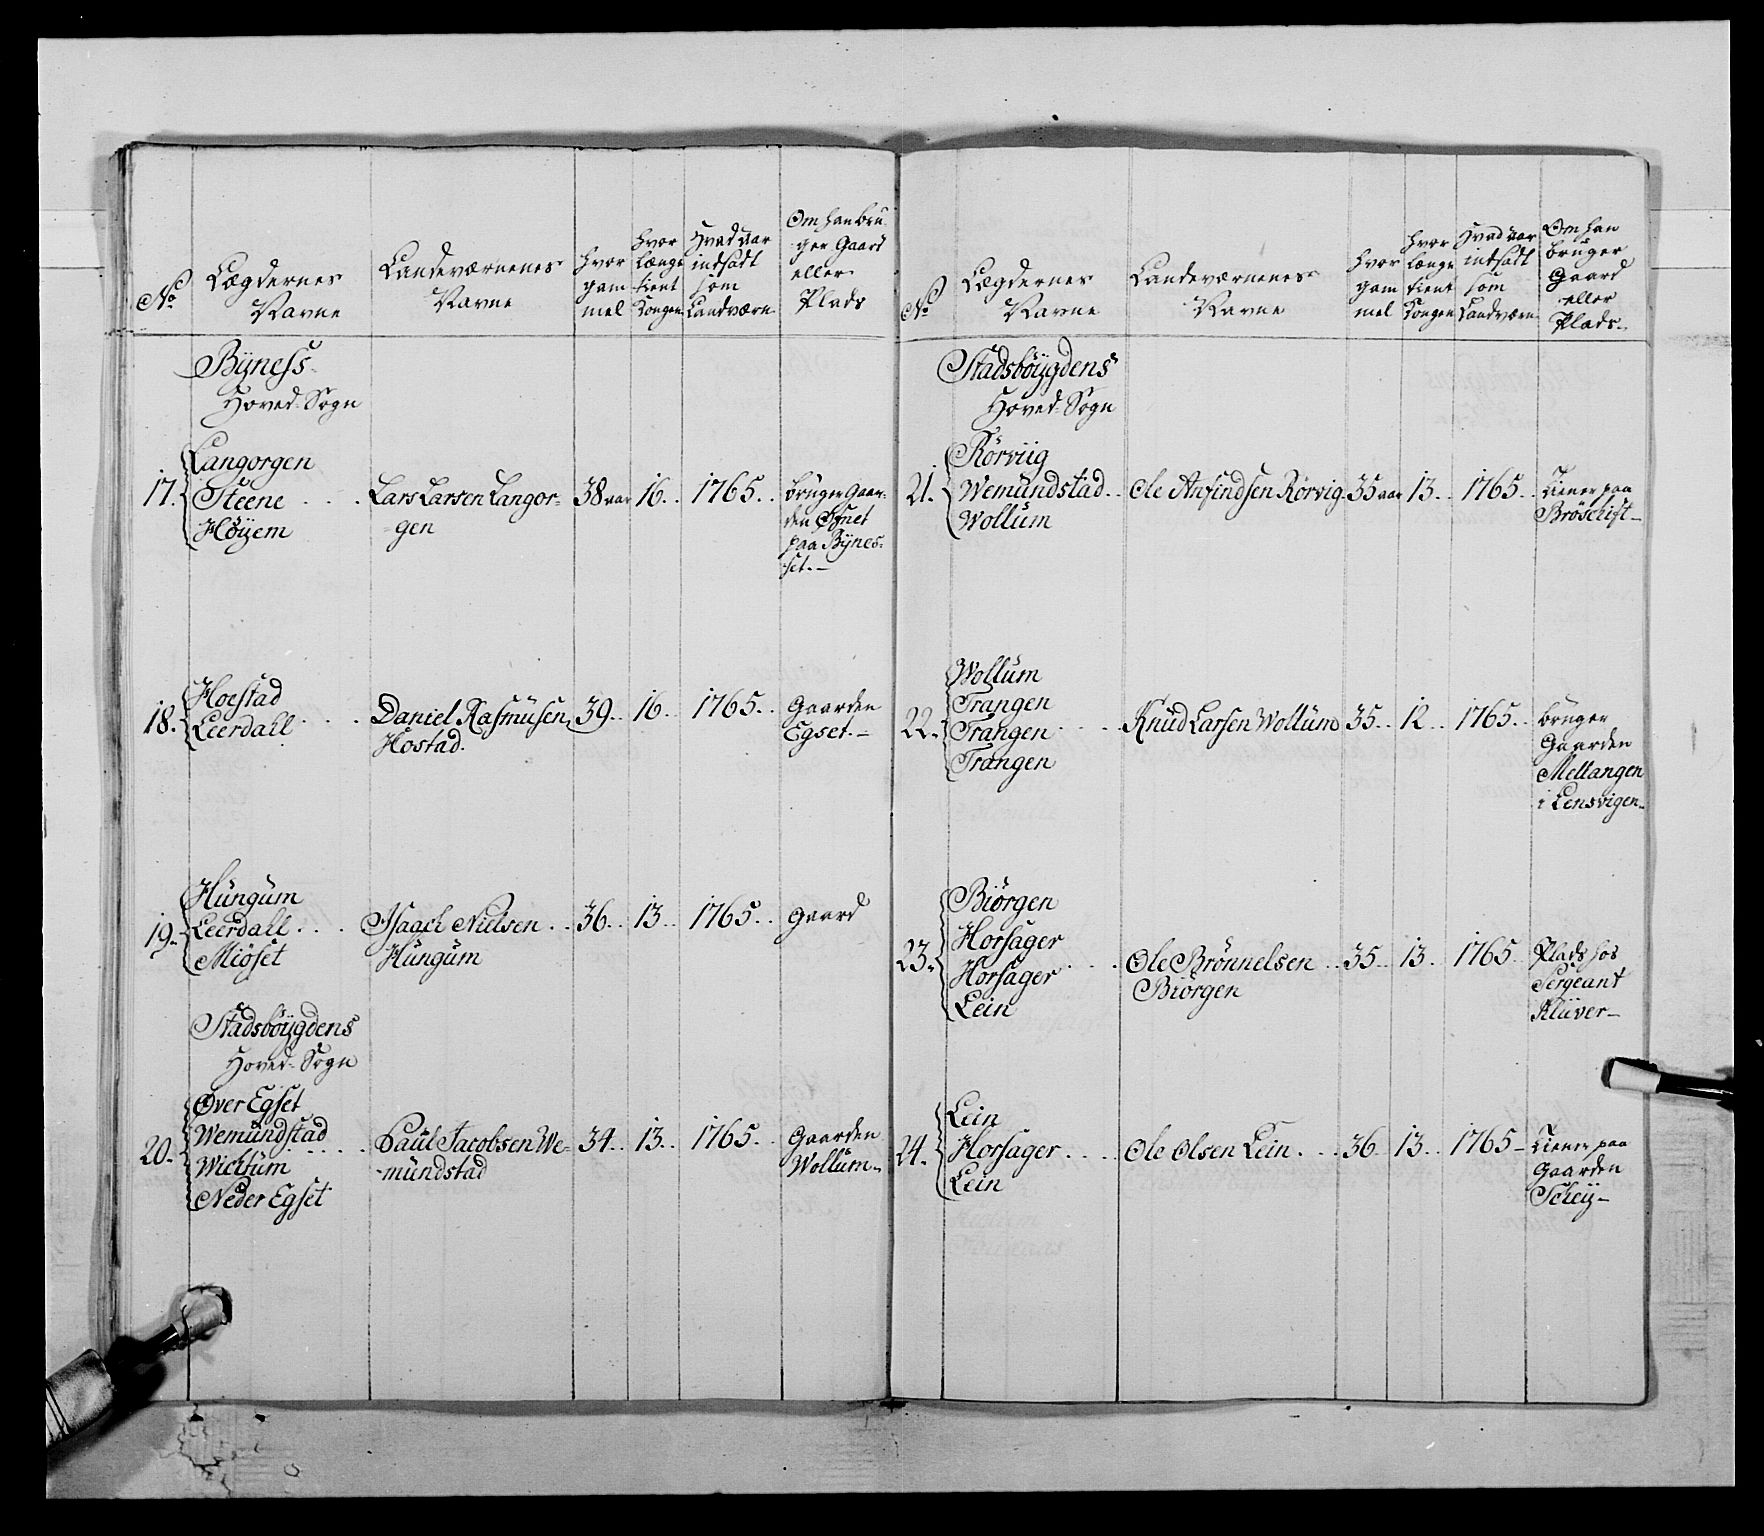 No
Lægdernes
Navne
Landeværnenes
Navne
hvor
gam
mel
hvor
længe
tient
Kongen
Hvad aar
indsadt
som
Landværn
Om han bru
ger Gaard
eller
Plads
Byness
Hoved-Sogn
17.
Langorgen
Steene . . . .
Høÿem
Lars Larsen Langor-
gen
38 aar
16..
1765..
bruger Gaar-
den
paa Bÿnes-
set.-
18.
Hoestad
Leerdahl . . . .
Daniel Rasmusen
Hostad.
39..
16..
1765..
Gaarden
Egset.-
19.
Hungum
Leerdahl . . . .
Miøset
Isaach Nielsen . .
Hungum
36..
13..
1765..
Gaard
Stadsbøÿgdens
Hoved-Sogn
20.
Øver Egset
Wemundstad . . . .
Wichtum
Neder Egset
Paul Jacobsen We-
-mundstad
34..
13..
1765..
Gaarden
Wollum-
No
Lægdernes
Navne
Landeværnenes
Navne
hvor
gam
mel
hvor
længe
tient
Kongen
Hvad aar
indsadt
som
Landværn
Om han
bruger
Gaard
eller
Plads-
Stadsbøÿgdens
Hoved-Sogn
21.
Rørviig
Wemundstad..
Wollum
Ole Anfindsen Rørvig
35 aar
13..
1765..
Tiener paa
22.
Wollum
Trangen
Trangen . . . .
Trangen
Knud Larsen Wollum
35..
12..
1765..
bruger
Gaarden
Mellangen
i Lensvigen-
23.
Biørgen
Horsager
Horsager . . . .
Lein
Ole Brønnelsen ..
Biørgen
35..
13..
1765.
Plads hos
Sergeant
Klüver-
24.
Lein
Horsager . . . .
Lein
Ole Olsen Lein. . .
36.
13..
1765-
Tiener paa
Gaarden
Scheÿ-